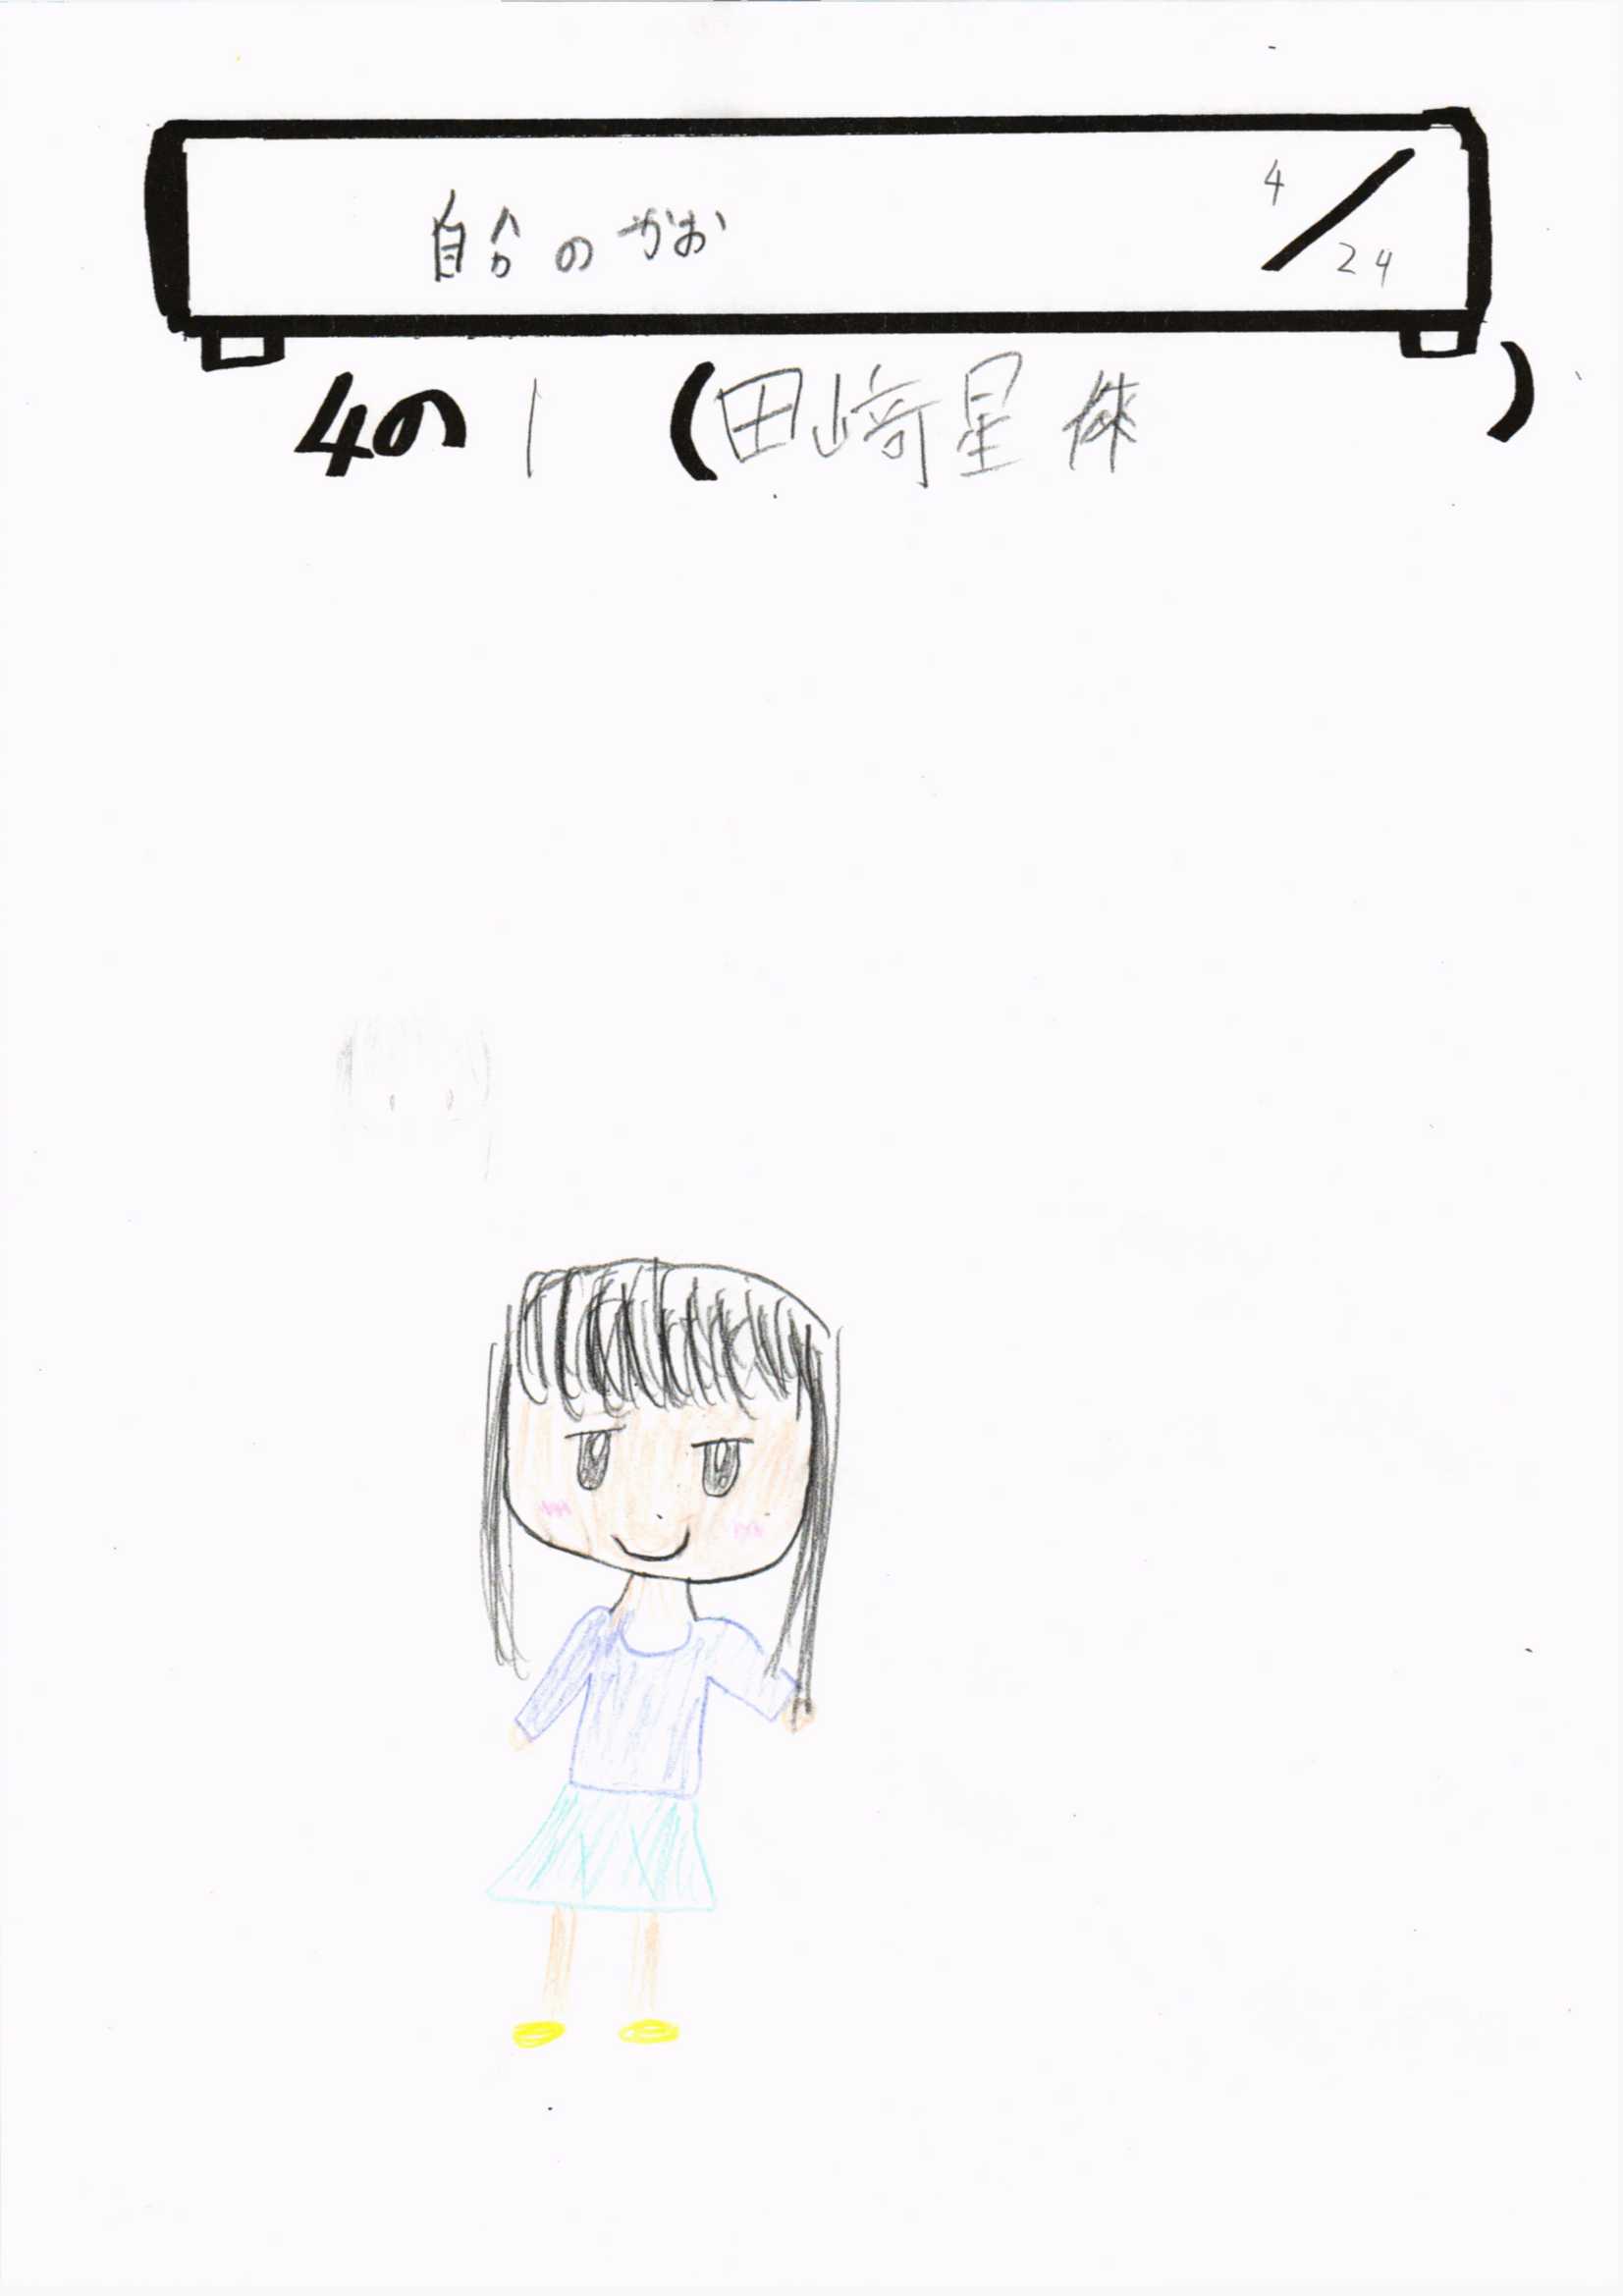 自分のがお
4/24
4の1(田﨑星)